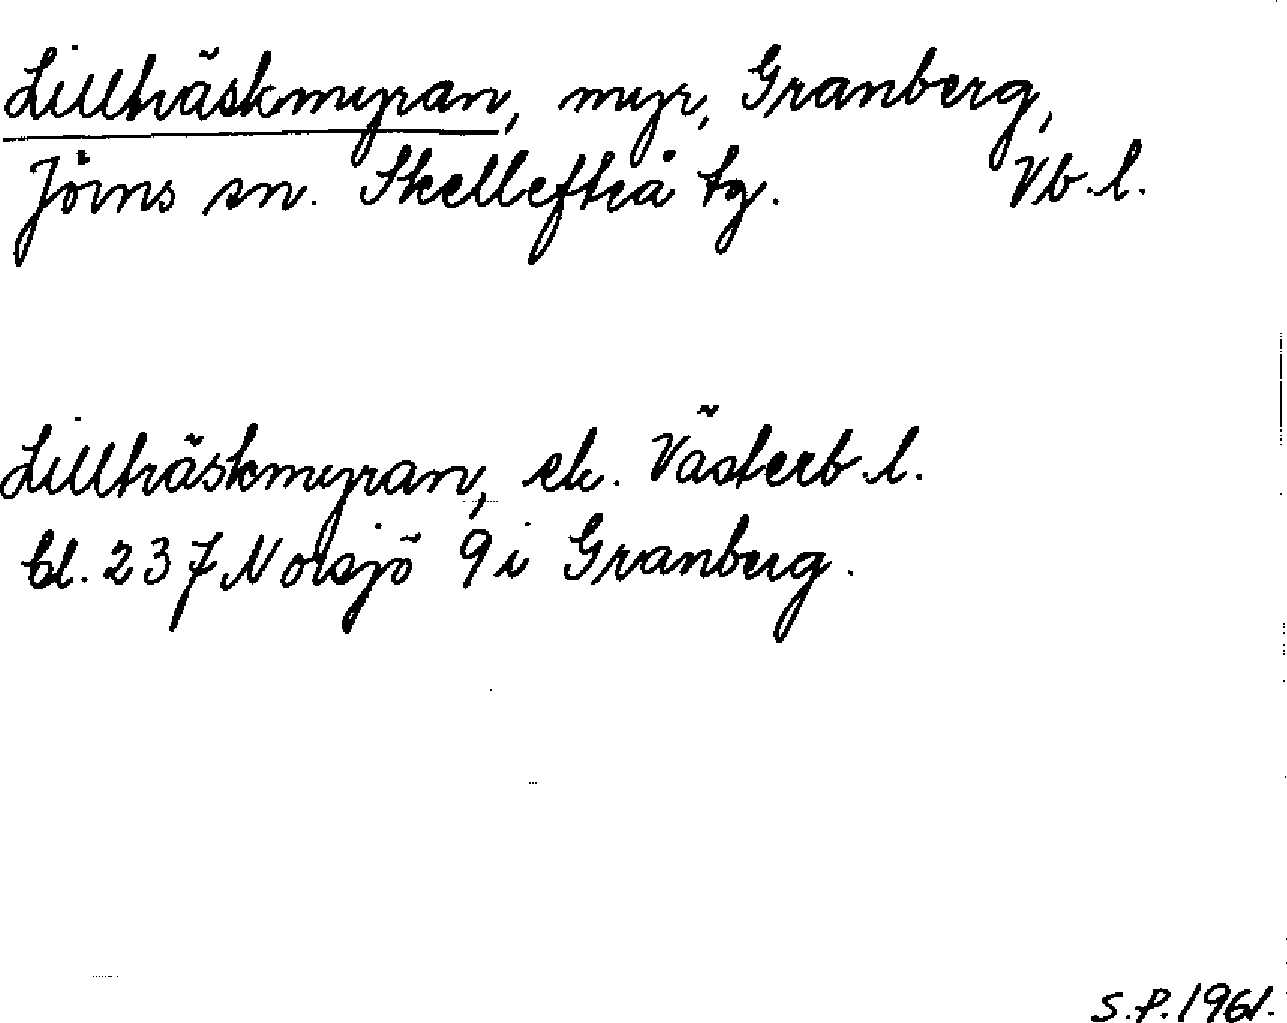 Lillträskmyran, myr, Granberg,
Jörns sn. Skellefteå tg. Vb.l.
Lillträskmyran, ek. Västerb.l.
bl. 23 J Norsjö 9 i Granberg.
S.P. 1961.